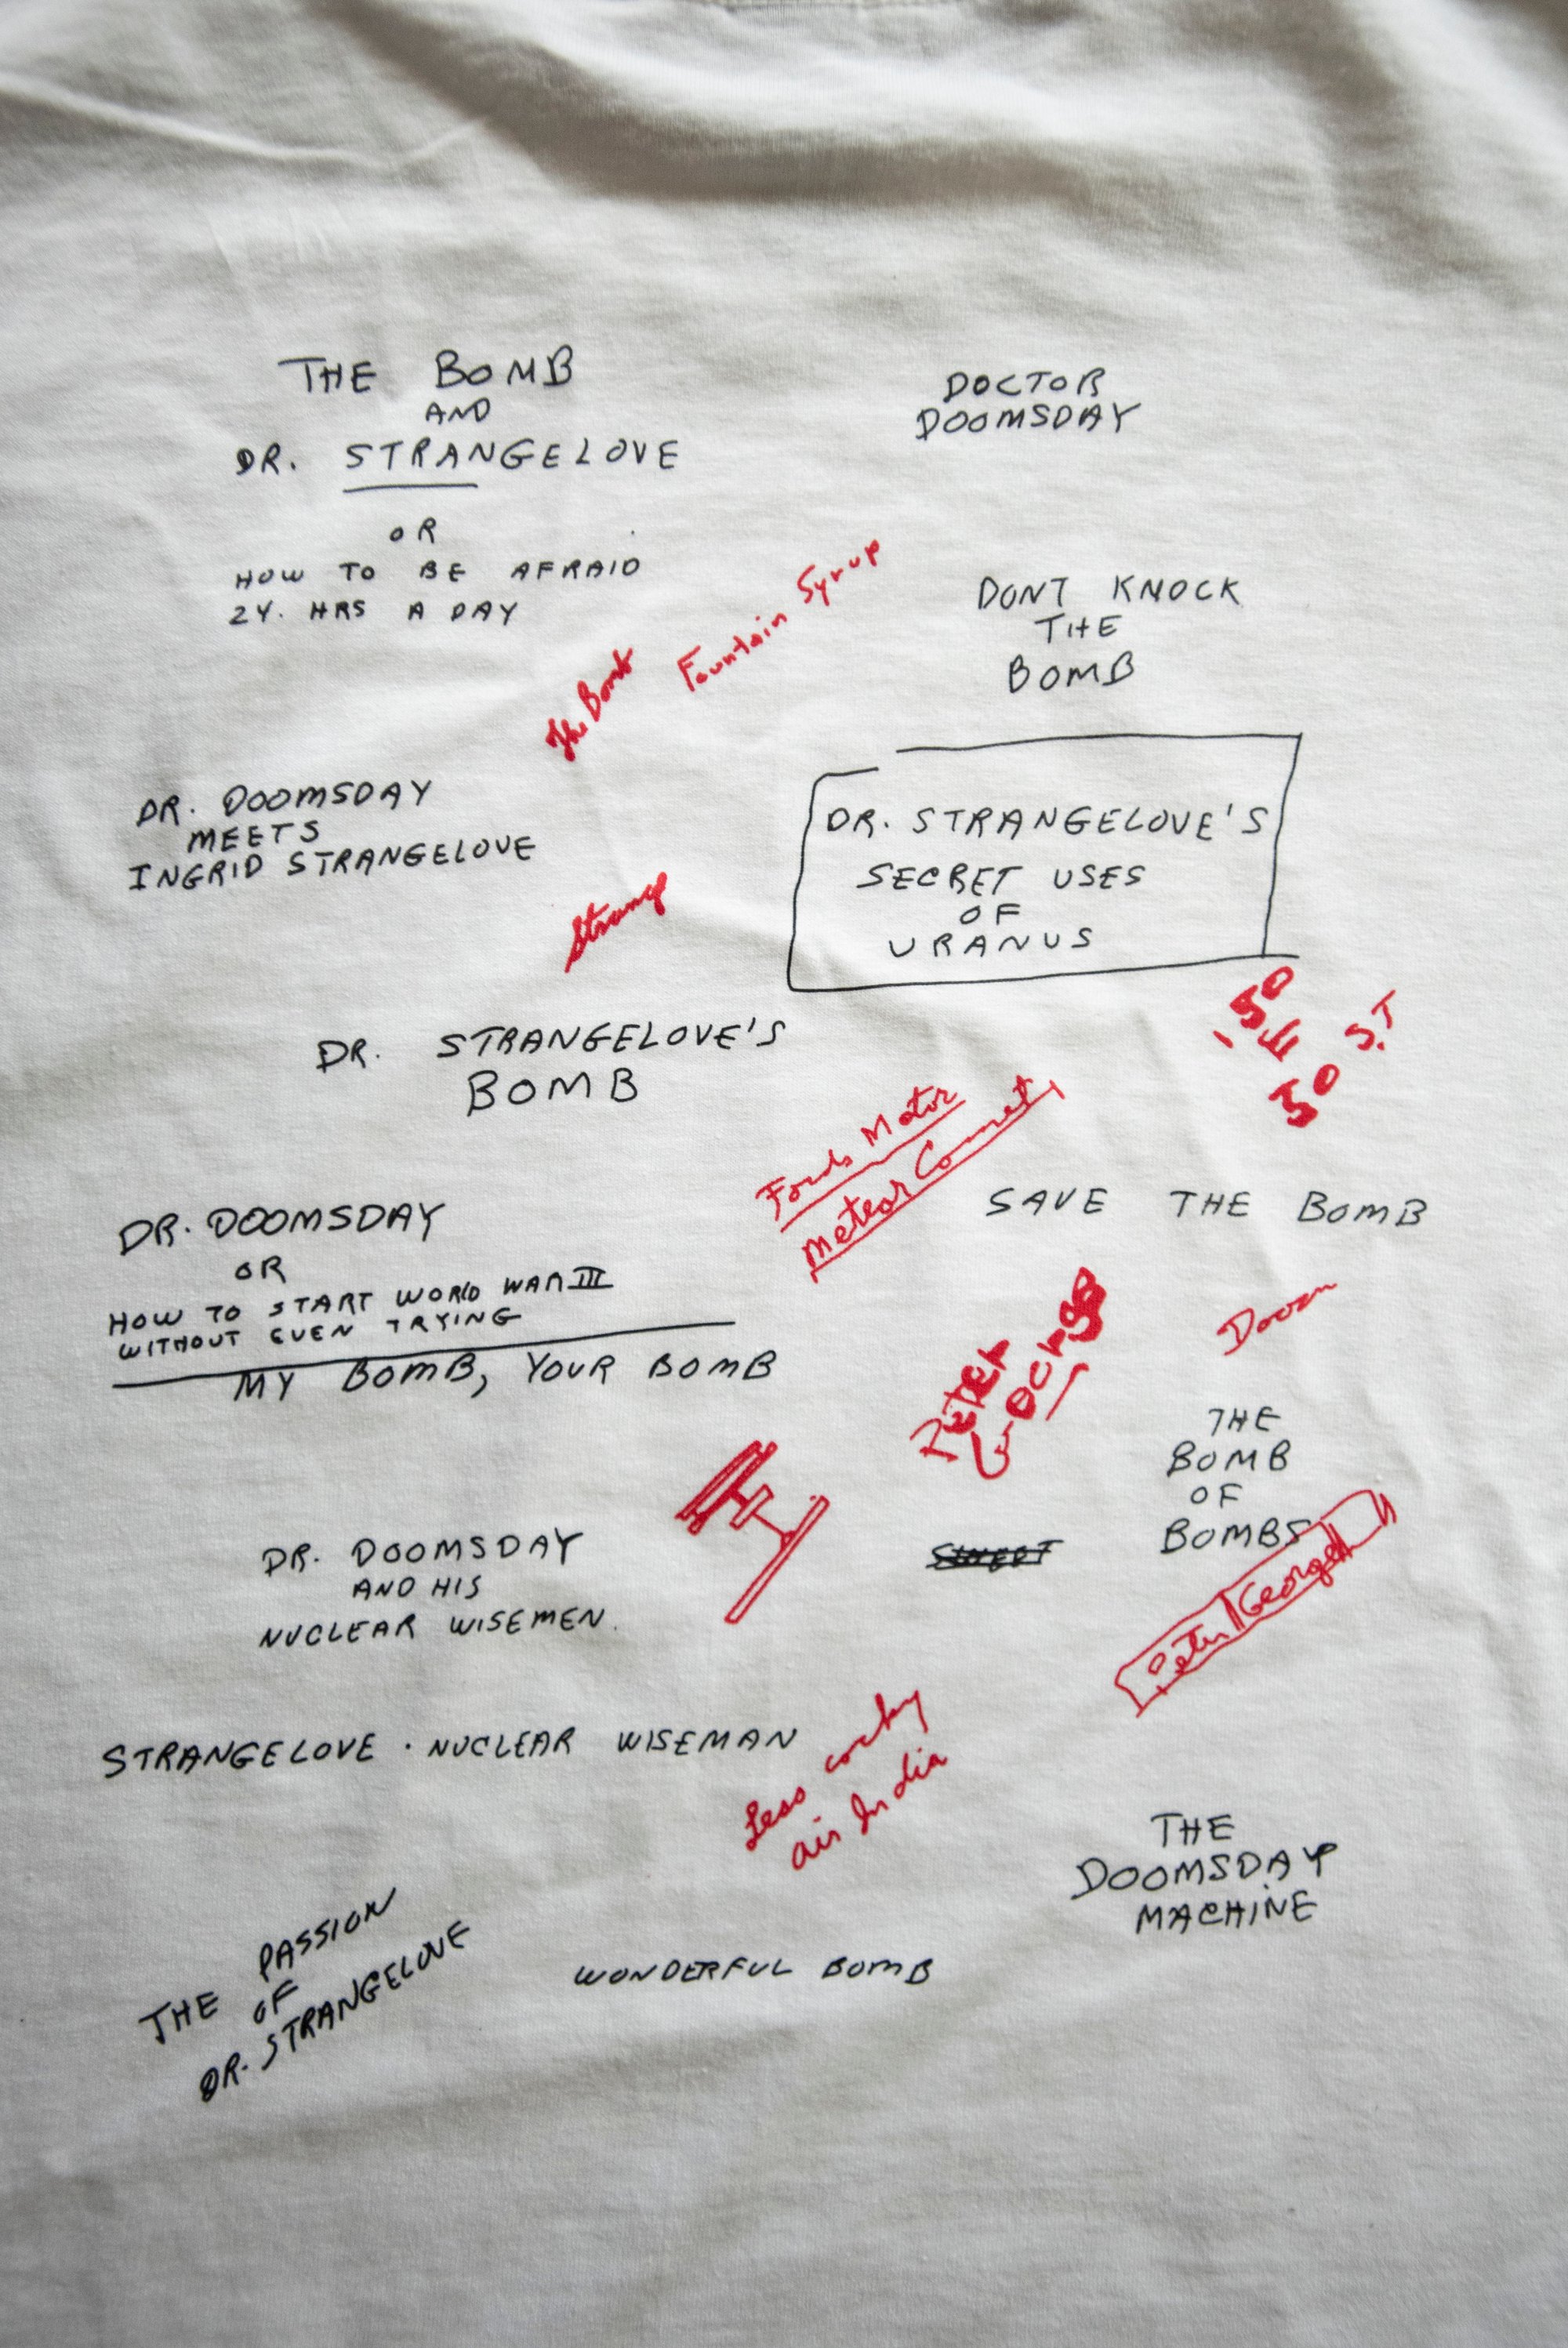 THE BOMB
AND
DR. STRANGELOVE
OR
HOW TO BE AFRAID
24. HRS A DAY
DOCTOR
DOOMSDAY
DONT KNOCK
THE
BOMB
Fountain Syrup
The Bomb
DR. DOOMSDAY
MEETS
INGRID STRANGELOVE
DR. STRANGELOVE'S
SECRET USES
OF
URANUS
Strang
DR. STRANGELOVE'S
BOMB
150
E
50 S.T
Fords Motor
Meteor Comet
SAVE THE BOMB
DR. DOOMSDAY
OR
HOW TO START WORLD WAR III
WITHOUT EVEN TRYING
MY BOMB, YOUR BOMB
Doom
PETER
GEORGE
THE
BOMB
OF
BOMBS
Peter George
DR. DOOMSDAY
AND HIS
NUCLEAR WISEMEN.
STRANGELOVE · NUCLEAR WISEMAN
Less
air India
THE
DOOMSDAY
MACHINE
THE PASSION
OF
DR. STRANGELOVE
WONDERFUL BOMB